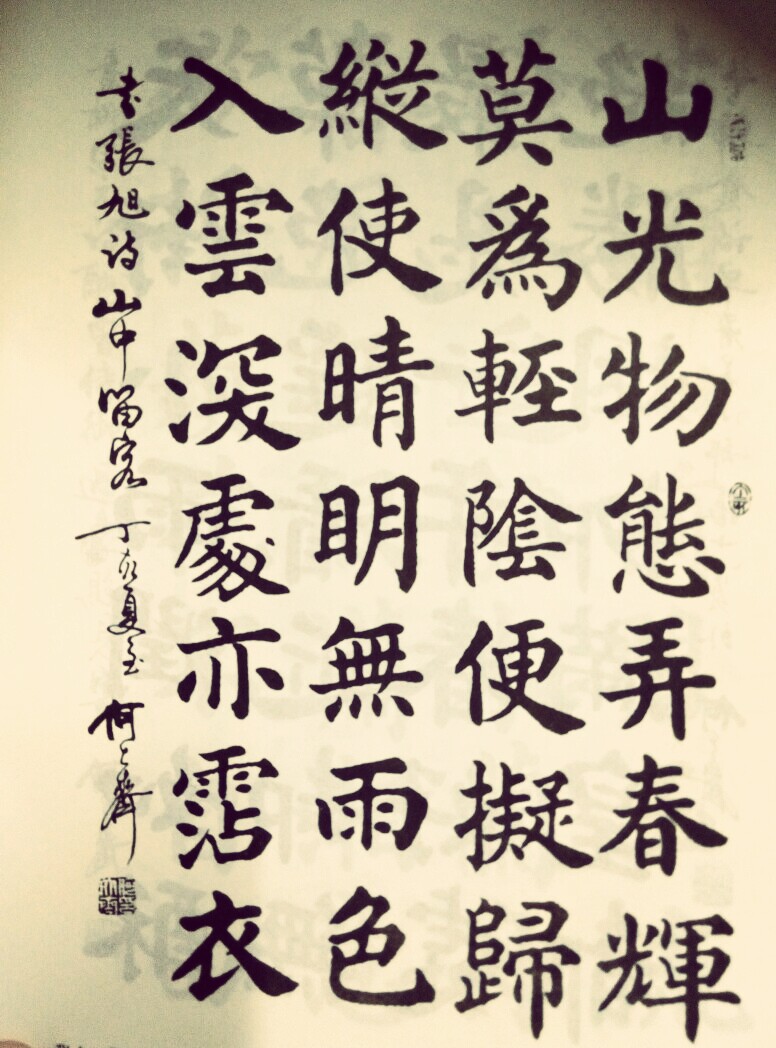 山光物態弄春輝
莫爲輕陰便擬歸
縱使晴明無雨色
入雲深處亦霑衣
书張旭诗山中留客丁亥夏至何